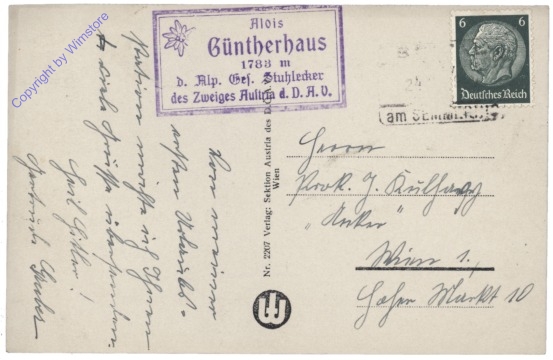 Copyright by Wimstore
Alois
Güntherhaus
1783 m
d. Alp. Ges. Stuhlecker
des Zweiges Austria d. D. A. V.
6 6
Deutsches Reich
am
Von meiner
ersten Urlaubs-
station möchte ich Ihnen
viele Grüße übersenden.
Heil Hitler!
Nr. 2207 Verlag: Sektion Austria des D.
Wien
Herrn
Prok. J.
„Anker"
Wien 1.,
Hoher Markt 10